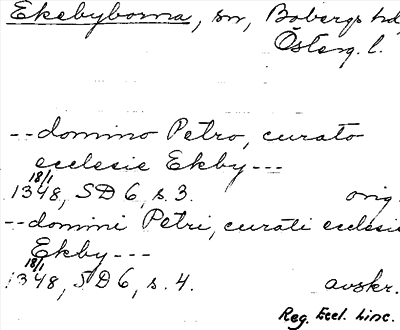 Ekebyborna, sn, Bobergs hd,
Österg. l.
--domino Petro, curato
ecclesie Ekby---
18/1
1348, SD 6, s. 3. orig.
--domini Petri, curati ecclesie
Ekby---
18/1
1348, SD 6, s. 4. avskr.
Reg. Eccl. Linc.